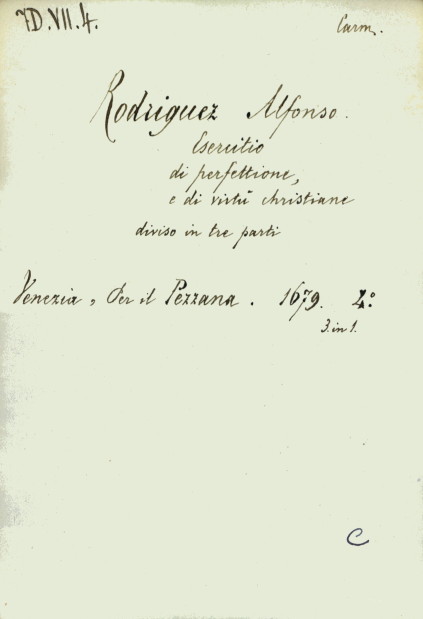 7D.VII.4.
Carm.
Rodriguez Alfonso.
Esercitio
di perfettione,
e di virtù christiane
diviso in tre parti
Venezia, Per il Pezzana. 1679. 4.º
3. in 1.
C